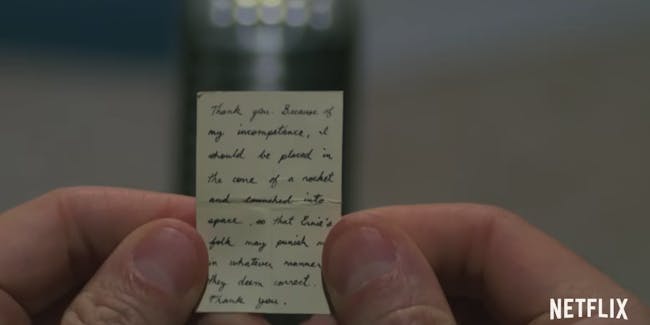 Thank you. Because of
my incompetance, I
should be placed in
the cone of a rocket
and launched into
space, so that Ernie's
folk may punish
in whatever manner
they deem correct.
Thank you.
NETFLIX